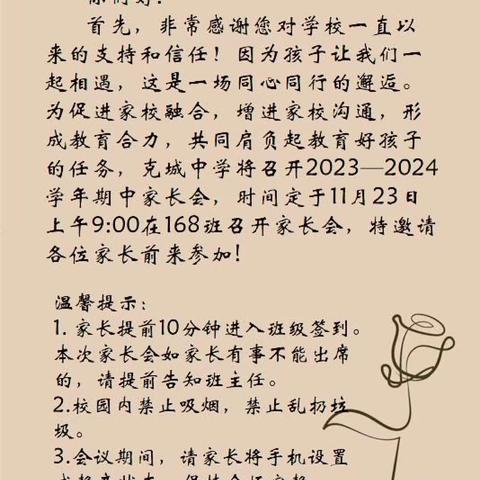 首先，非常感谢您对学校一直以
来的支持和信任！因为孩子让我们一
起相遇，这是一场同心同行的邂逅。
为促进家校融合，增进家校沟通，形
成教育合力，共同肩负起教育好孩子
的任务，克城中学将召开2023—2024
学年期中家长会，时间定于11月23日
上午9:00在168班召开家长会，特邀请
各位家长前来参加！
温馨提示：
1. 家长提前10分钟进入班级签到。
本次家长会如家长有事不能出席
的，请提前告知班主任。
2.校园内禁止吸烟，禁止乱扔垃
圾。
3.会议期间，请家长将手机设置